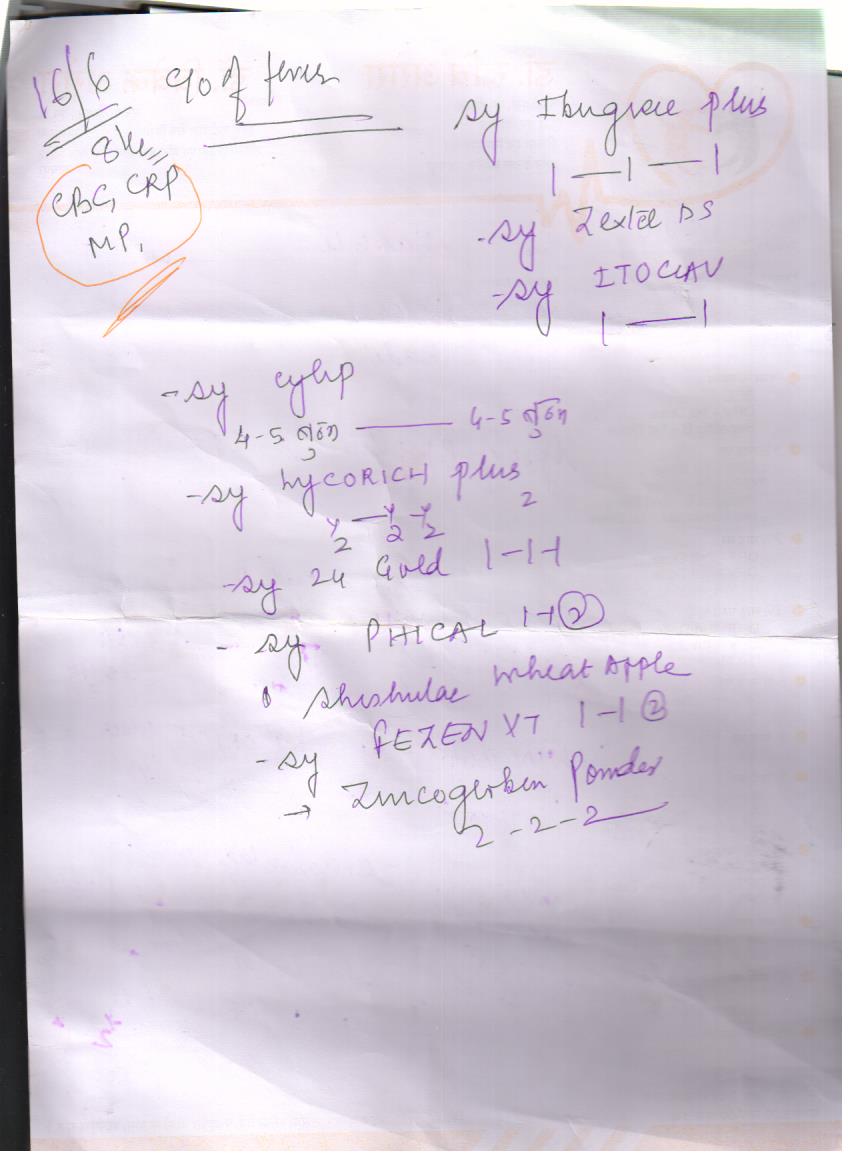 16/6 c/o of fever
8 kg
CBC, CRP
MP,
sy Ibugrae plus
1 — 1 — 1
- sy Zextel DS
- sy ITOCLAV
1 — 1
- sy cylip
4-5 बूंद — 4-5 बूंद
- sy LYCORICH plus
1/2 — 1/2 - 1/2
- sy 24 Gold 1-1-1
- sy PHICAL 1-1 (2)
Shishulac Wheat Apple
- sy FEZEN XT 1-1 (2)
→ Zincoglobin Powder
2-2-2